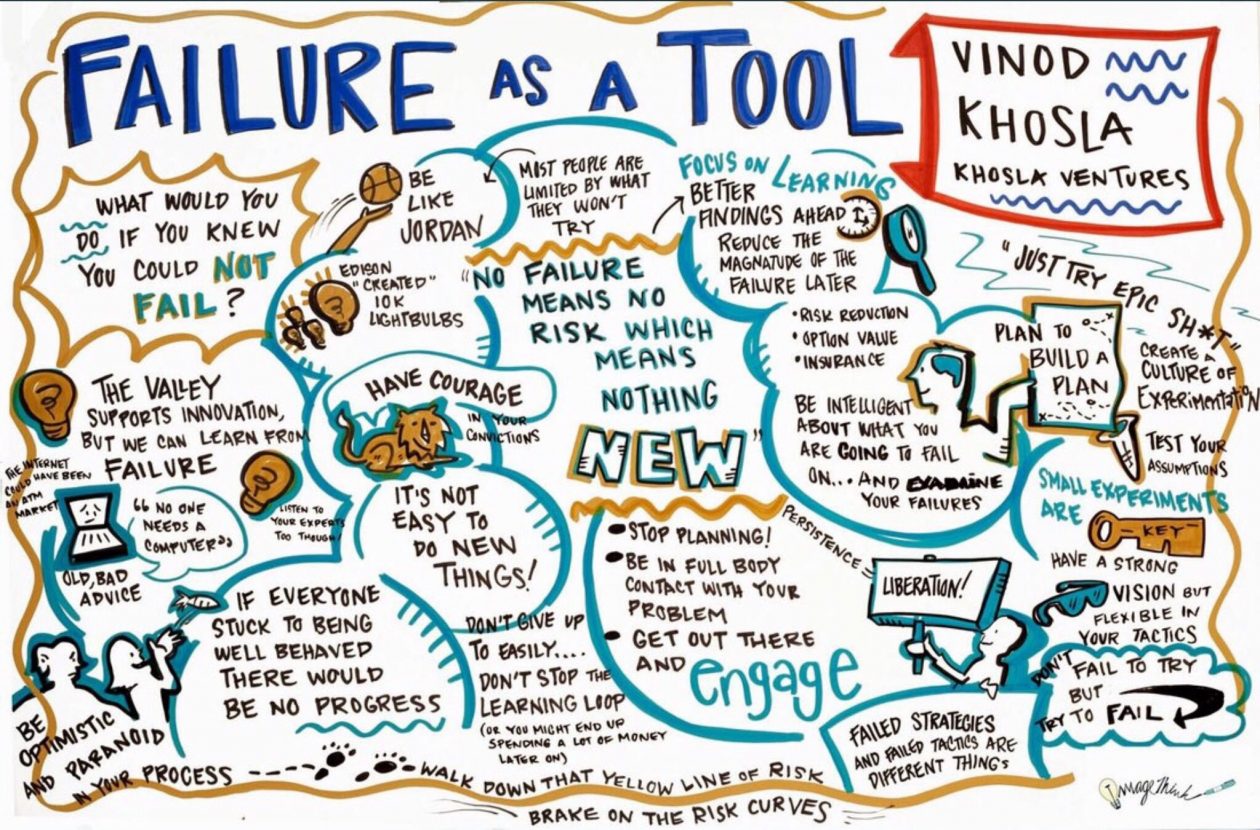 FAILURE AS A TOOL
VINOD
KHOSLA
KHOSLA VENTURES
WHAT WOULD YOU
DO IF YOU KNEW
YOU COULD NOT
FAIL?
BE
LIKE
JORDAN
MOST PEOPLE ARE
LIMITED BY WHAT
THEY WON'T
TRY
FOCUS ON LEARNING
BETTER
FINDINGS AHEAD
REDUCE THE
MAGNATUDE OF THE
FAILURE LATER
EDISON
"CREATED"
10K
LIGHTBULBS
"NO FAILURE
MEANS NO
RISK WHICH
MEANS
NOTHING
NEW"
"JUST TRY EPIC SH*T"
• RISK REDUCTION
• OPTION VALUE
• INSURANCE
PLAN TO
BUILD A
PLAN
CREATE A
CULTURE OF
EXPERIMENTATION
THE VALLEY
SUPPORTS INNOVATION,
BUT WE CAN LEARN FROM
FAILURE
HAVE COURAGE
IN YOUR
CONVICTIONS
BE INTELLIGENT
ABOUT WHAT YOU
ARE GOING TO FAIL
ON... AND EXAMINE
YOUR FAILURES
TEST YOUR
ASSUMPTIONS
THE INTERNET
COULD HAVE BEEN
AN ATM
MARKET
"NO ONE
NEEDS A
COMPUTER"
LISTEN TO
YOUR EXPERTS
TOO THOUGH!
OLD, BAD
ADVICE
IT'S NOT
EASY TO
DO NEW
THINGS!
SMALL EXPERIMENTS
ARE
KEY
• STOP PLANNING!
• BE IN FULL BODY
CONTACT WITH YOUR
PROBLEM
• GET OUT THERE
AND engage
PERSISTENCE =
LIBERATION!
HAVE A STRONG
VISION BUT
FLEXIBLE IN
YOUR TACTICS
IF EVERYONE
STUCK TO BEING
WELL BEHAVED
THERE WOULD
BE NO PROGRESS
DON'T GIVE UP
TO EASILY....
DON'T STOP THE
LEARNING LOOP
(OR YOU MIGHT END UP
SPENDING A LOT OF MONEY
LATER ON)
DON'T FAIL TO TRY
BUT
TRY TO FAIL
BE
OPTIMISTIC
AND PARANOID
IN YOUR PROCESS
FAILED STRATEGIES
AND FAILED TACTICS ARE
DIFFERENT THINGS
WALK DOWN THAT YELLOW LINE OF RISK
BRAKE ON THE RISK CURVES
ImageThink